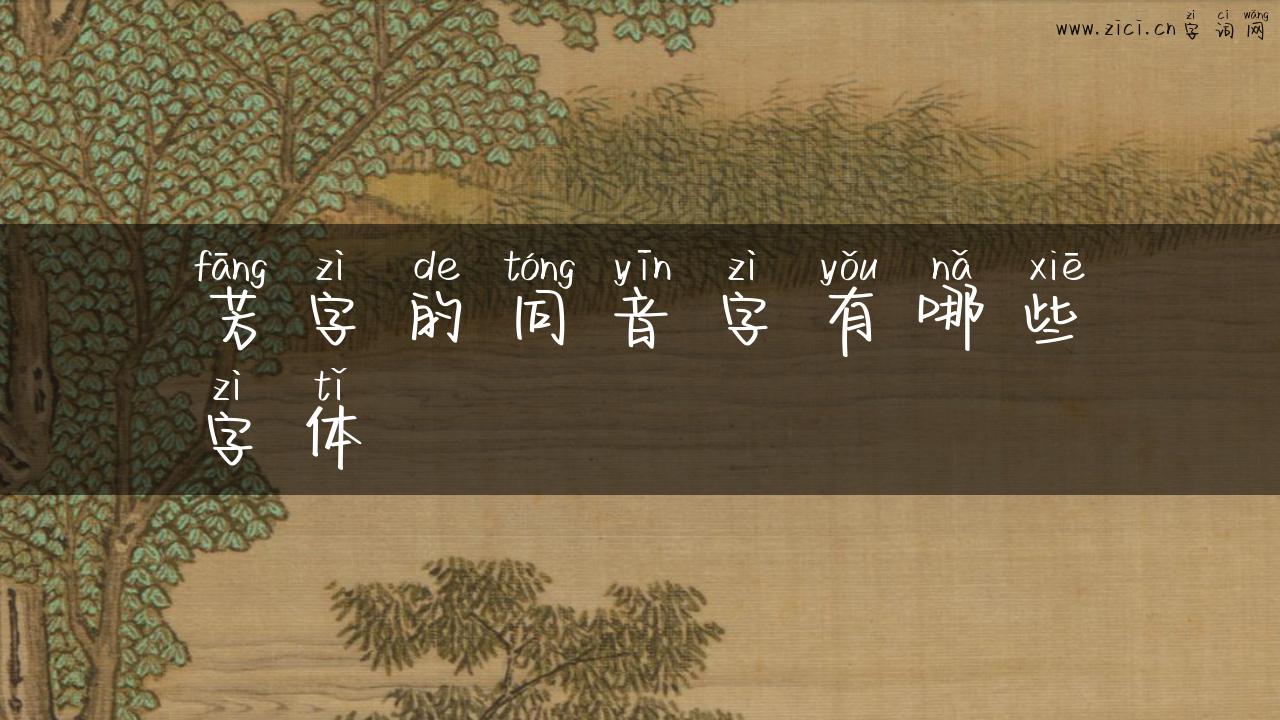 zì cí wǎng
www.zici.cn字词网
fāng zì de tóng yīn zì yǒu nǎ xiē
芳字的同音字有哪些
zì tǐ
字体